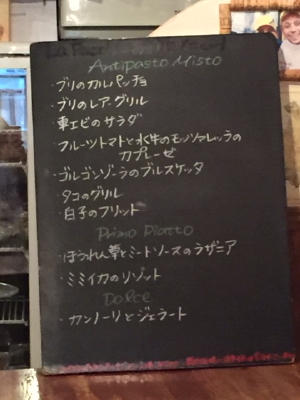 Antipasto Misto
・ブリのカルパッチョ
・ブリのレア・グリル
・車エビのサラダ
・フルーツトマトと水牛のモッツァレッラの
カプレーゼ
・ゴルゴンゾーラのブルスケッタ
・タコのグリル
・白子のフリット
Primo Piatto
・ほうれん草とミートソースのラザニア
・ミミイカのリゾット
Dolce
・カンノーリとジェラート